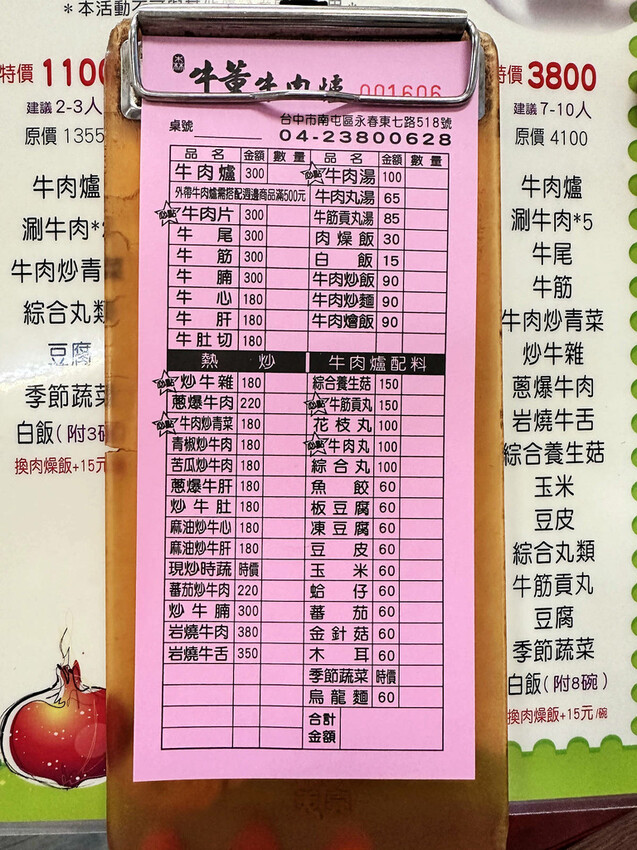 ＊本活動不
特價 1100
建議 2-3人
原價 1355
牛肉爐
涮牛肉*
牛肉炒青
綜合丸類
豆腐
季節蔬菜
白飯(附3碗
換肉燥飯+15元
牛董牛肉爐 001606
台中市南屯區永春東七路518號
桌號 04-23800628
品名 金額 數量 品名 金額 數量
牛肉爐 300 必點 牛肉湯 100
外帶牛肉爐需搭配週邊商品滿500元 牛肉丸湯 65
必點 牛肉片 300 牛筋貢丸湯 85
牛尾 300 肉燥飯 30
牛筋 300 白飯 15
牛腩 300 牛肉炒飯 90
牛心 180 牛肉炒麵 90
牛肝 180 牛肉燴飯 90
牛肚切 180
熱炒 牛肉爐配料
必點 炒牛雜 180 綜合養生菇 150
蔥爆牛肉 220 必點 牛筋貢丸 150
必點 牛肉炒青菜 180 花枝丸 100
青椒炒牛肉 180 必點 牛肉丸 100
苦瓜炒牛肉 180 綜合丸 100
蔥爆牛肝 180 魚餃 60
炒牛肚 180 板豆腐 60
麻油炒牛心 180 凍豆腐 60
麻油炒牛肝 180 豆皮 60
現炒時蔬 時價 玉米 60
蕃茄炒牛肉 220 蛤仔 60
炒牛腩 300 蕃茄 60
岩燒牛肉 380 金針菇 60
岩燒牛舌 350 木耳 60
季節蔬菜 時價
烏龍麵 60
合計
金額
特價 3800
建議 7-10人
原價 4100
牛肉爐
涮牛肉*5
牛尾
牛筋
牛肉炒青菜
炒牛雜
蔥爆牛肉
岩燒牛舌
綜合養生菇
玉米
豆皮
綜合丸類
牛筋貢丸
豆腐
季節蔬菜
白飯(附8碗)
換肉燥飯+15元/碗